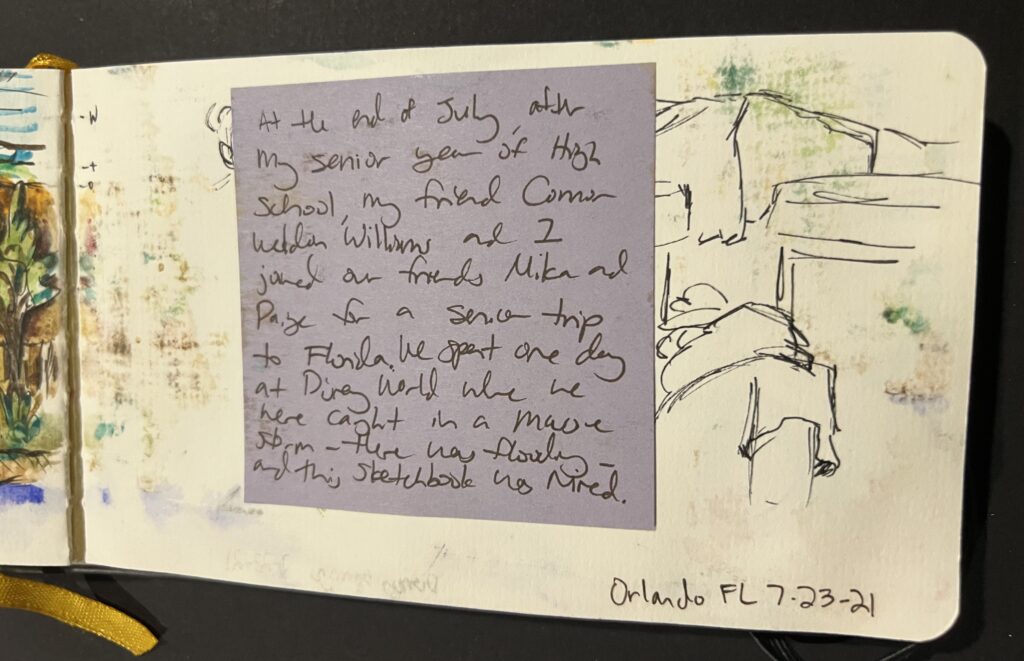 At the end of July, after
my senior year of High
school, my friend Connor
Weldon Williams and I
joined our friends Mika and
Paige for a senior trip
to Florida. We spent one day
at Disney World where we
were caught in a massive
storm - there was flooding -
and this sketchbook was ruined.
Orlando FL 7-23-21